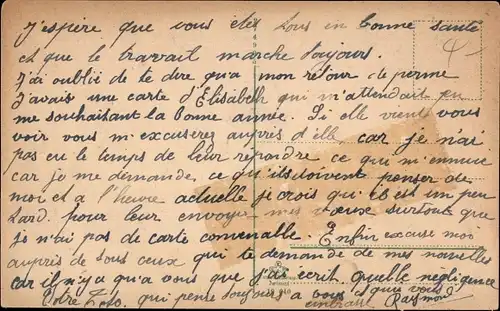 J'espère que vous êtes tous in bonne santé
et que le travail marche toujours.
J'ai oublié de te dire qu'a mon retour de perme
J'avais une carte d'Elisabeth qui m'attendait en
me souhaitant la bonne année. Si elle vient vous
voir vous m'excuserez auprès d'elle, car je n'ai
pas eu le temps de leur repondre ce qui m'ennuie
car je me demande, ce qu'ils doivent penser de
moi et a l'heure actuelle je crois qu'il est un peu
tard. pour leur envoyer mes vœux surtout que
je n'ai pas de carte convenable. Enfin excuse moi
auprès de tous ceux qui te demande de mes nouvelles
car il n'y a qu'a vous que j'ai ecrit. quelle negligence
Votre qui pense toujours a vous et qui vous
embrasse Raymond